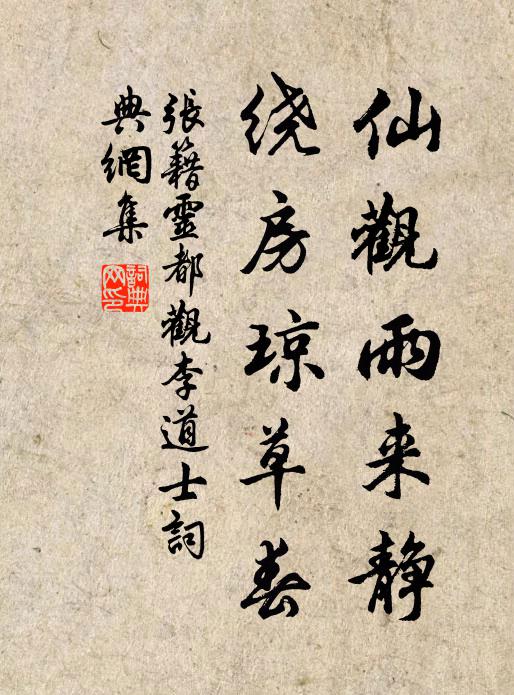 仙觀雨来静
绕房琼草春
張籍靈都觀李道士詞
典網集
詞典網印